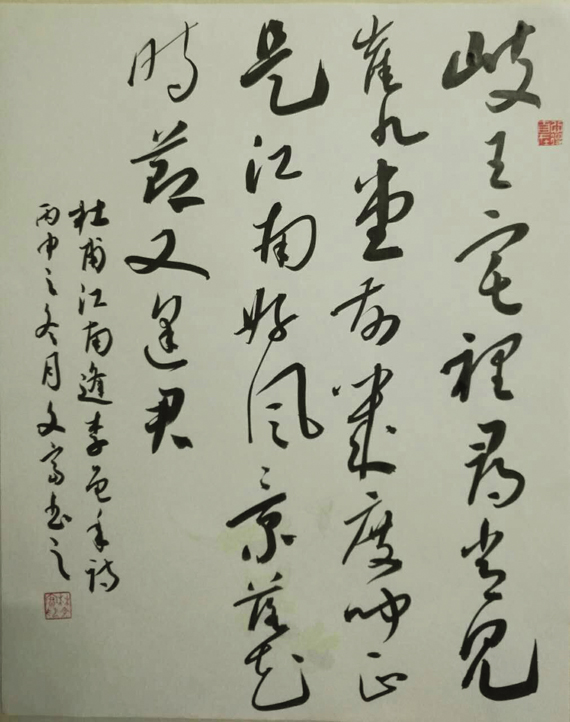 岐王宅裡尋常見
崔九堂前幾度聞正
是江南好風景落花
時節又逢君
杜甫江南逢李龜年詩
丙申之冬月文富書之